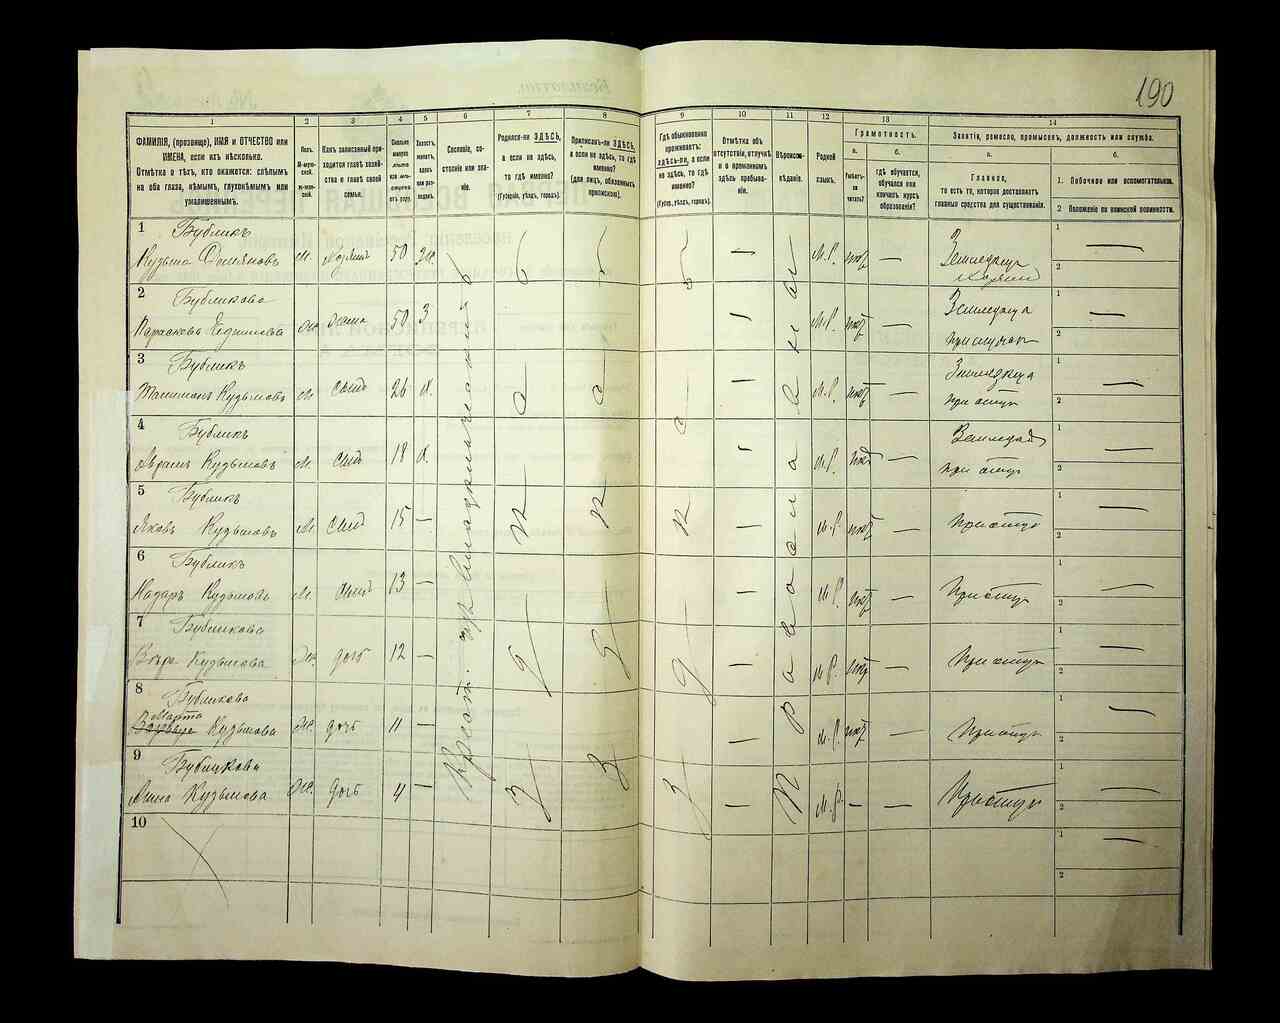 190
1
2
3
4
5
6
7
8
9
10
11
12
13
14
ФАМИЛІЯ, (прозвище), ИМЯ и ОТЧЕСТВО или
ИМЕНА, если ихъ нѣсколько.
Отмѣтка о тѣхъ, кто окажется: слѣпымъ
на оба глаза, нѣмымъ, глухонѣмымъ или
умалишеннымъ.
Полъ.
М-мужской.
Ж-женскій.
Какъ записанный приходится
главѣ хозяйства
и главѣ своей
семьи.
Сколько
минуло
лѣтъ
или мѣсяцевъ
отъ роду.
Холостъ,
женатъ,
вдовъ
или разведенъ.
Сословіе, состояніе
или званіе.
Родился-ли ЗДѢСЬ,
а если не здѣсь,
то гдѣ именно?
(Губернія, уѣздъ, городъ).
Приписанъ-ли ЗДѢСЬ,
а если не здѣсь, то гдѣ
именно?
(для лицъ, обязанныхъ
припискою).
Гдѣ обыкновенно
проживаетъ:
здѣсь-ли, а если
не здѣсь, то гдѣ
именно?
(Губер., уѣздъ, городъ).
Отмѣтка объ
отсутствіи, отлучкѣ
и о временномъ
здѣсь пребываніи.
Вѣроисповѣданіе.
Родной
языкъ.
Грамотность.
а.
Умѣетъ-ли
читать?
б.
гдѣ обучается,
обучался или
кончилъ курсъ
образованія?
Занятіе, ремесло, промыселъ, должность или служба.
а.
Главное,
то есть то, которое доставляетъ
главныя средства для существованія.
б.
1. Побочное или вспомогательное.
2 Положеніе по воинской повинности.
1 Бубликъ
Кузьма Демяновъ м. хозяинъ 50 Ж М.Р. — 1 —
2
2 Бубликова
жена 50 З М.Р. — 1 —
при мужѣ 2
3 Бубликъ
Кузьмовъ м сынъ 26 х. М.Р. — 1 —
при отцѣ 2
4 Бубликъ
Аврамъ Кузьмовъ м. сынъ 18 х. М.Р. — 1 —
при отцѣ 2
5 Бубликъ
Яковъ Кузьмовъ м сынъ 15 — М.Р. — При отцѣ 1 —
2
6 Бубликъ
Назаръ Кузьмовъ м. сынъ 13 — М.Р. — При отцѣ 1 —
2
7 Бубликова
Кузьмова ж дочь 12 — М.Р. — При отцѣ 1 —
2
8 Бубликова
Марта
Кузьмова ж. дочь 11 — М.Р. — При отцѣ 1 —
2
9 Бубликова
Анна Кузьмова ж. дочь 4 — М.Р. — — При отцѣ 1 —
2
Крест.
Здѣсь
Здѣсь
Здѣсь
Православный
10 1 —
2